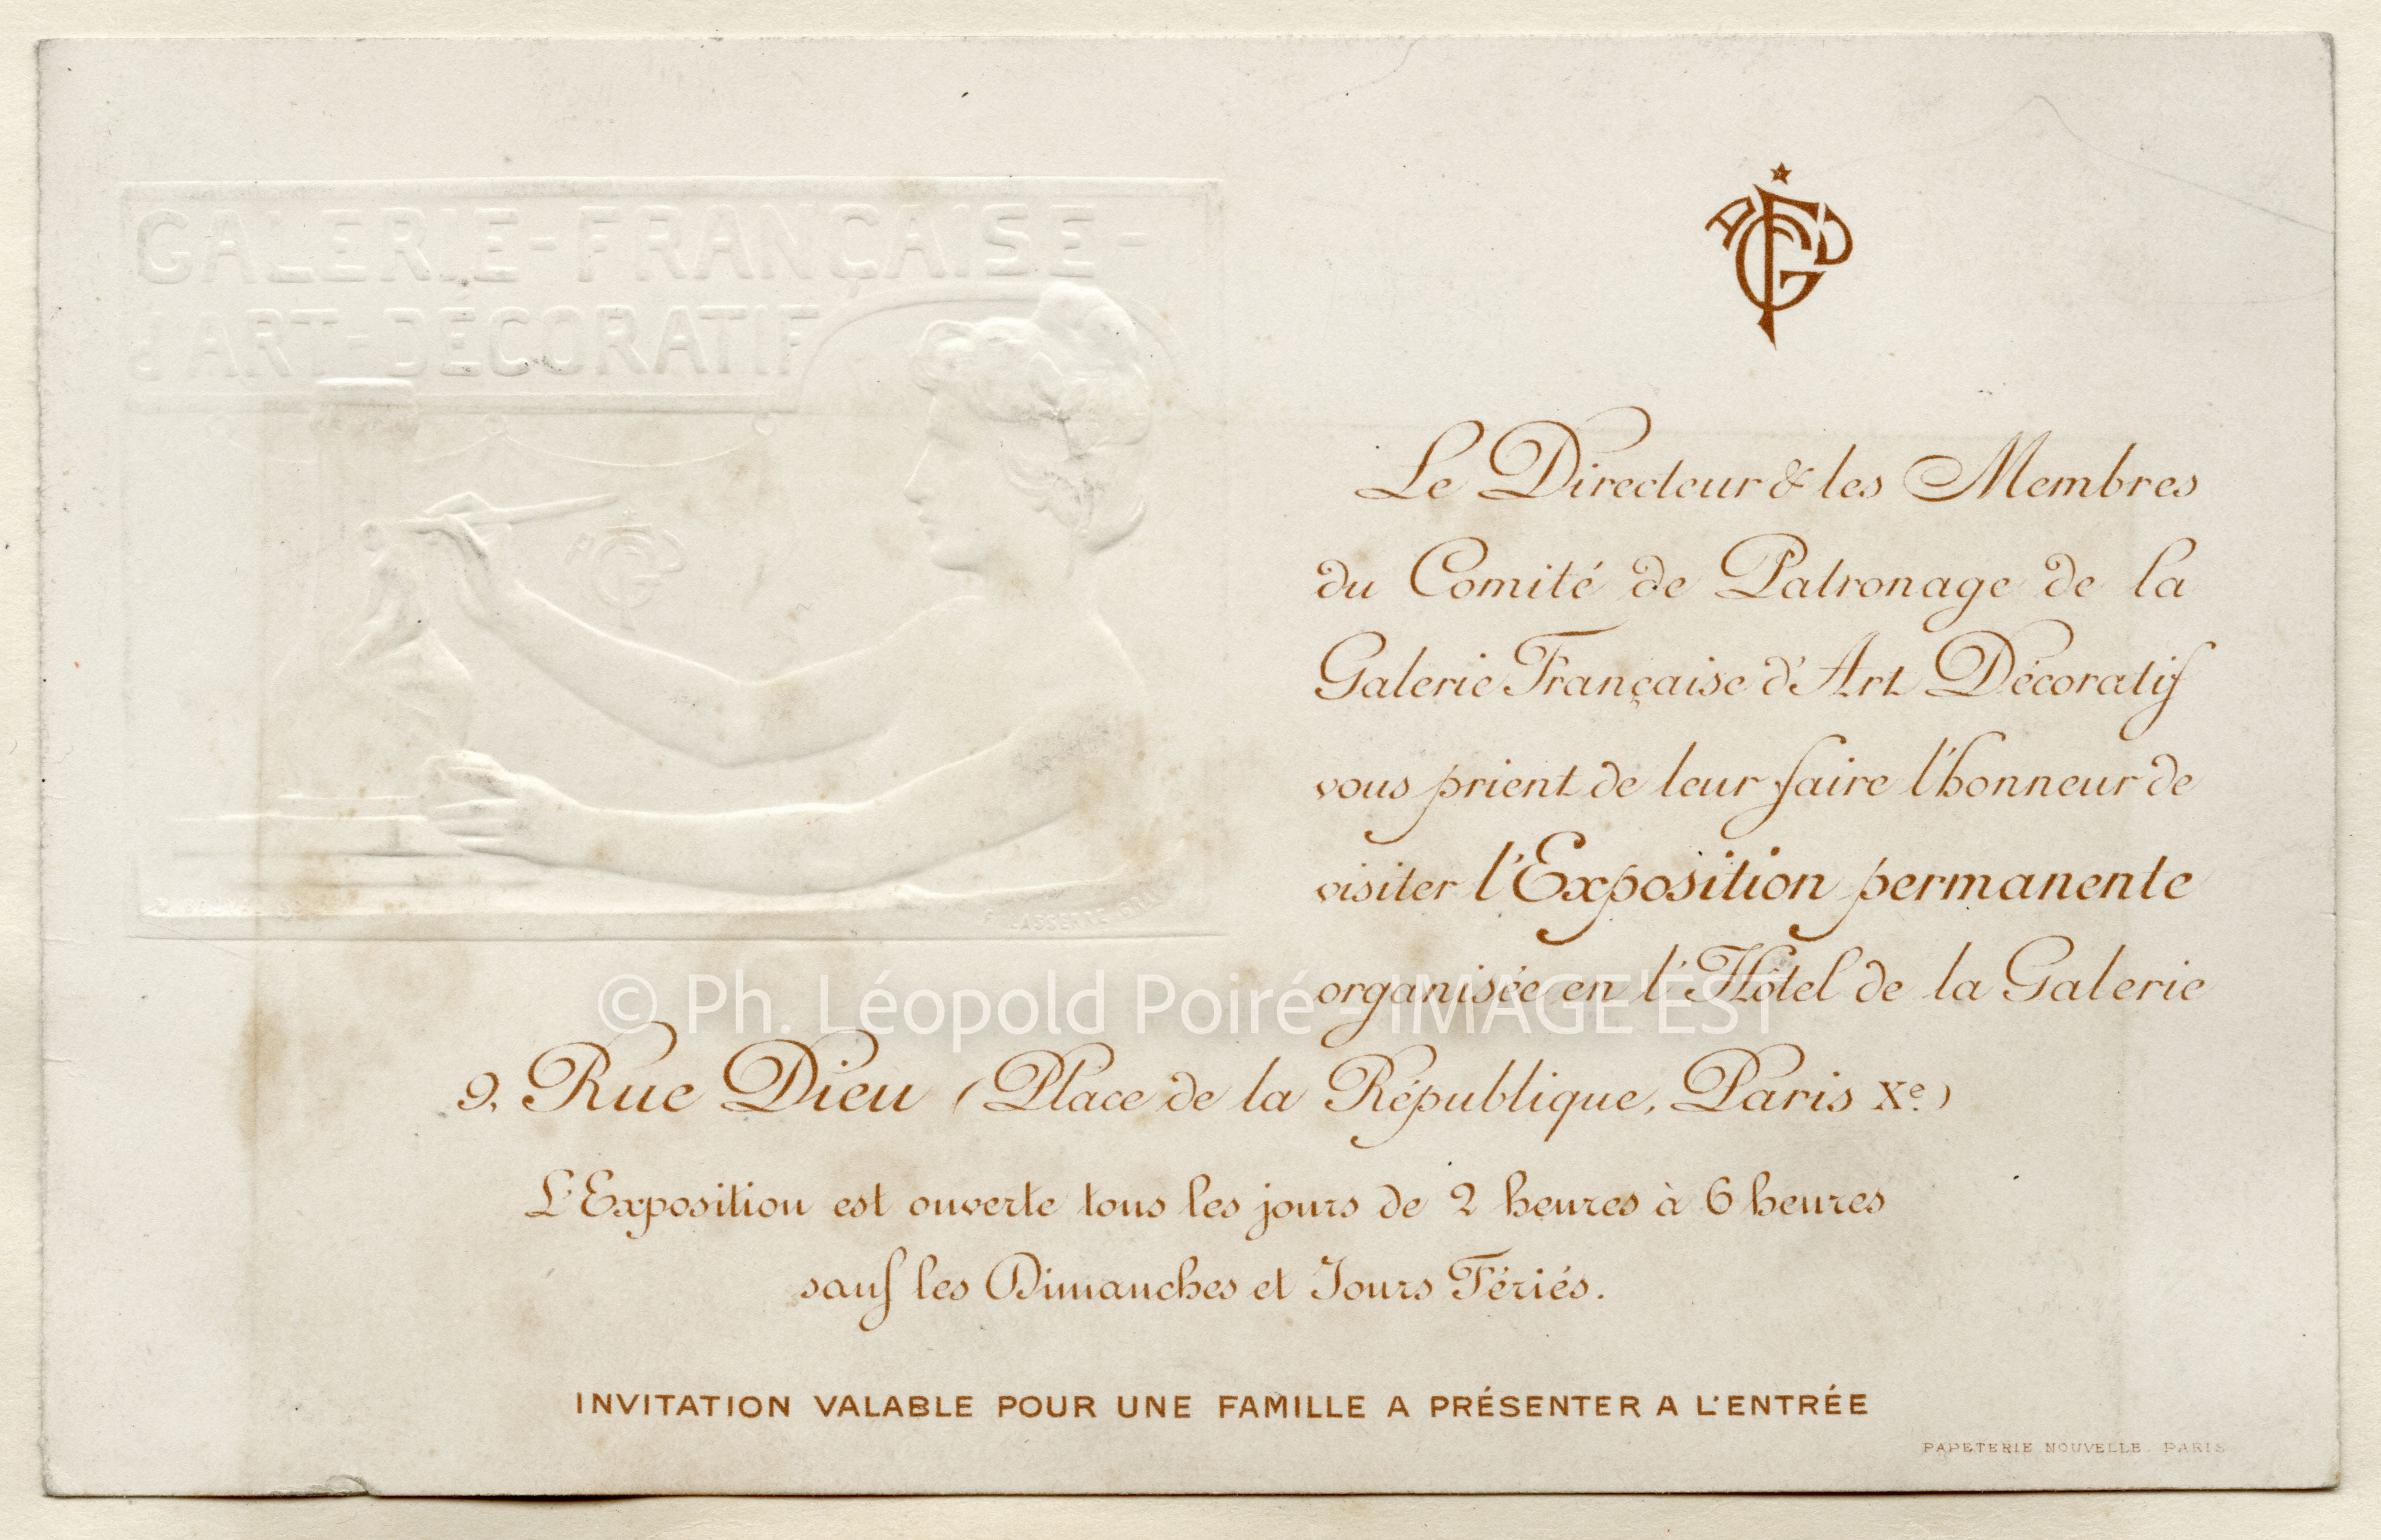 GALERIE-FRANÇAISE-
d'ART-DÉCORATIF
Le Directeur & les Membres
du Comité de Patronage de la
Galerie Française d'Art Décoratif
vous prient de leur faire l'honneur de
visiter l'Exposition permanente
organisée en l'Hôtel de la Galerie
© Ph. Léopold Poiré - IMAGE'EST
9, Rue Dieu (Place de la République, Paris Xe.)
L'Exposition est ouverte tous les jours de 2 heures à 6 heures
sauf les Dimanches et Jours Fériés.
INVITATION VALABLE POUR UNE FAMILLE A PRÉSENTER A L'ENTRÉE
PAPETERIE NOUVELLE. PARIS